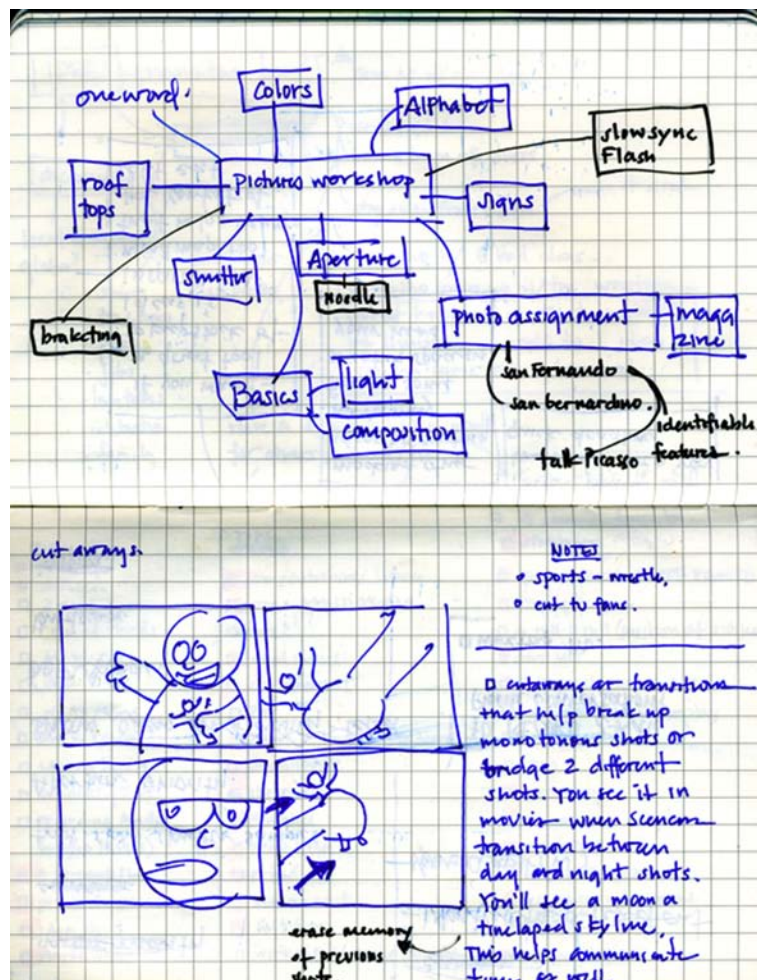 one word.
Colors
Alphabet
slow sync
Flash
roof
tops
pictures workshop
signs
shutter
Aperture
Noodle
braketing
photo assignment
maga
zine
Basics
light
composition
san Fernando
san bernardino.
identifiable
features.
talk Picasso
cut aways.
NOTES
sports - wrestle.
cut to fans.
cutaways are transitions
that help break up
monotonous shots or
bridge 2 different
shots. You see it in
movies when
transition between
day and night shots.
You'll see a moon a
timelapsed skyline.
This helps communicate
erase memory
of previous
shots